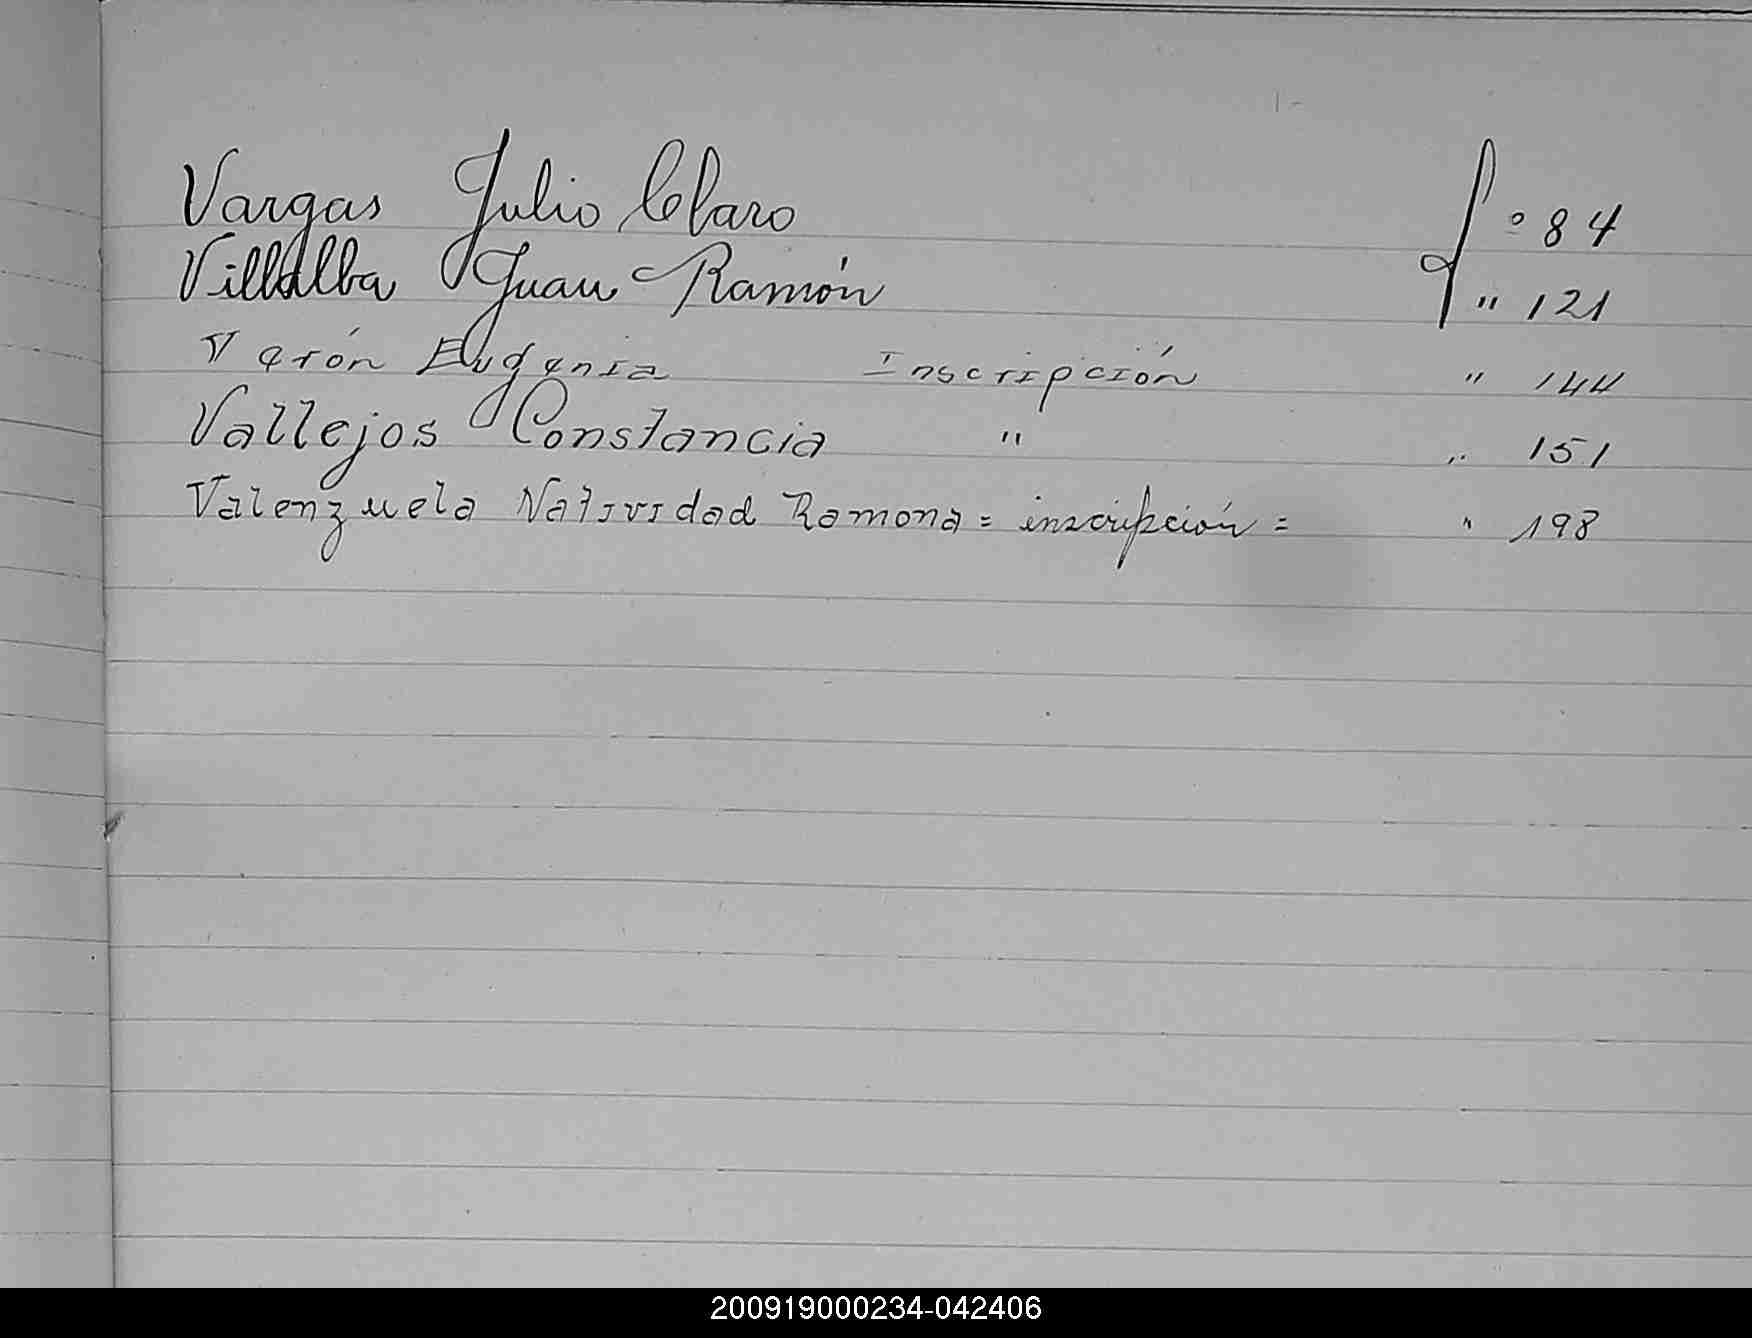 Vargas Julio Claro fº 84
Villalba Juan Ramón " 121
Verón Eugenia Inscripción " 144
Vallejos Constancia " " 151
Valenzuela Natividad Ramona = inscripción = " 198
200919000234-042406